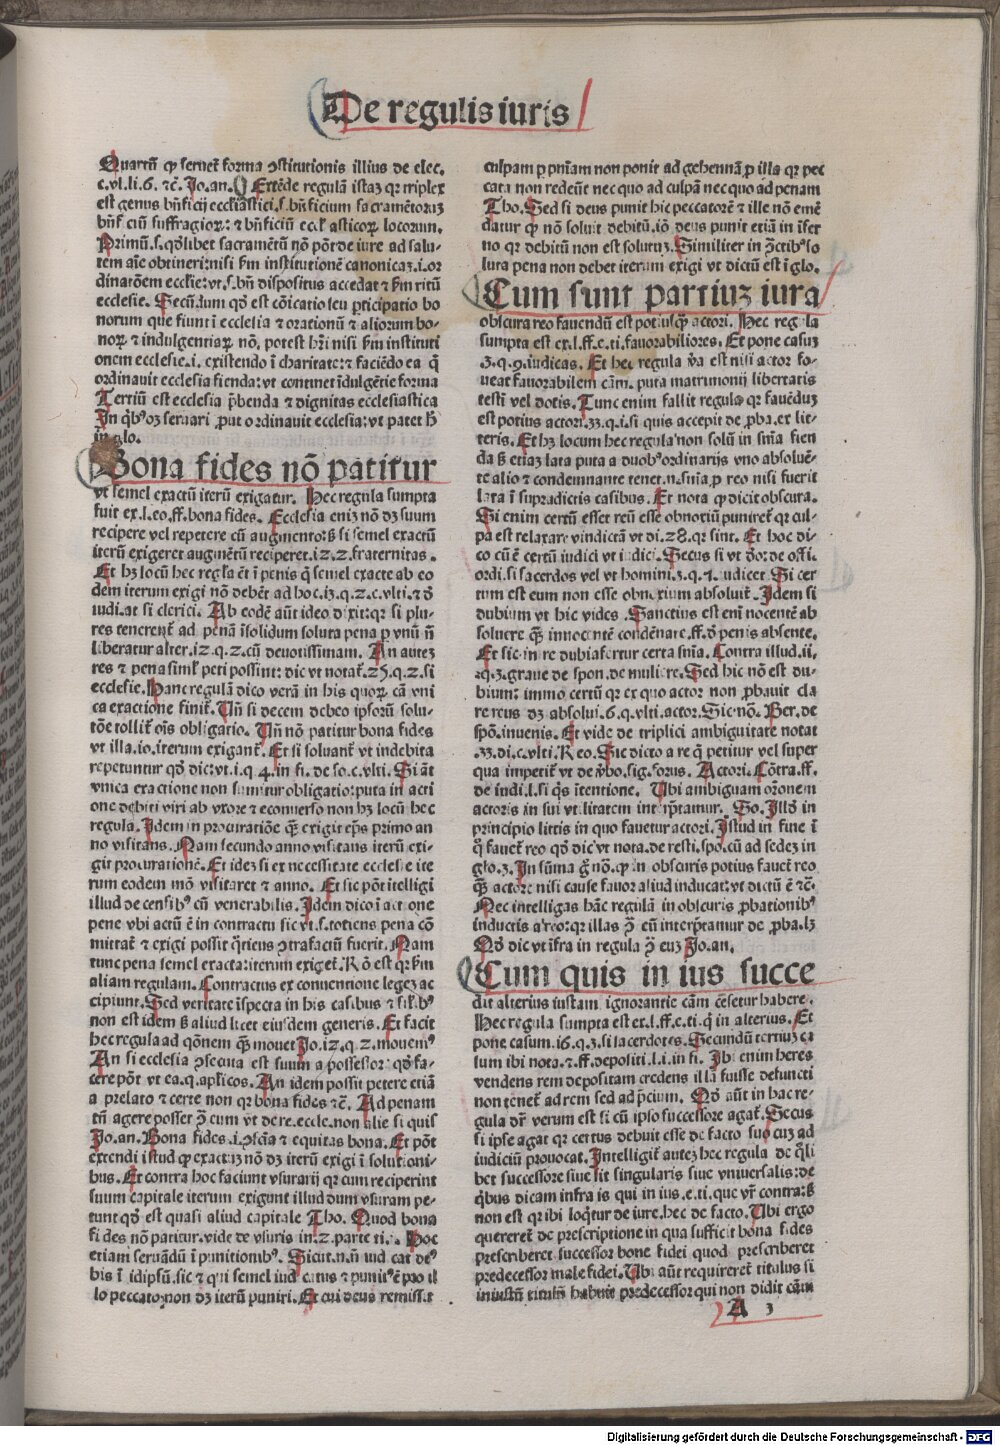 De regulis iuris
Quartũ ꝙ seruet᷑ forma ꝯstitutionis illius de elec.
c.vl.li.6. ⁊č. Jo.an. Extẽde regulã istaꝫ qꝛ triplex
est genus bñficij eccl'iastici.s.bñficium sacramẽtoruꝫ
bñficiũ suffragioꝝ: ⁊ bñficiũ eccl'asticoꝝ locorum.
Primũ.s.qđlibet sacramẽtũ nõ põt de iure ad salu-
tem aĩe obtineri:nisi ẜm institutionẽ canonicaꝫ.i.or
dinatõem ecclie:vt.s.bñ dispositus accedat ⁊ ẜm ritũ
ecclesie. Secũdum qđ est cõicatio seu ꝑticipatio bo
norum que fiunt ĩ ecclesia ⁊ orationũ ⁊ aliorum bo-
noꝝ ⁊ indulgentiaꝝ nõ potest hr̃i nisi ẜm instituti
onem ecclesie.i. existendo ĩ charitate: ⁊ faciẽdo ea q̃
ordinauit ecclesia fienda:vt continet ĩdulgẽtie forma
Tertiũ est ecclesia p̃benda ⁊ dignitas ecclesiastica
Jn q̃bꝰ oꝫ seruari ꝓut ordinauit ecclesia:vt patet ħ
in glo.
Bona fides nõ patitur
vt semel exactũ iterũ exigatur. Hec regula sumpta
fuit ex.l.eo.ff.bona fides. Ecclesia eniꝫ nõ dꝫ suum
recipere vel repetere cũ augmento:ß si semel exactũ
iterũ exigeret augmẽtũ reciperet.12.2.fraternitas.
Et hꝫ locũ hec regl'a ẽt ĩ penis q̃ semel exacte ab eo
dem iterum exigi nõ debẽt ad hoc.13.q.2.c.vlti.⁊ đ
iudi.at si clerici. Ab eodẽ aũt ideo dixit:qꝛ si plu-
res tenerent᷑ ad penã ĩsolidum soluta pena ꝑ vnũ ñ
liberatur alter.12.q.2.cũ deuotissimam. An auteꝫ
res ⁊ pena simul peti possint: dic vt notat᷑.25.q.2.si
ecclesie. Hanc regulã dico verã in his quoꝝ cã vni
ca exactione finit᷑. Uñ si decem debeo ipsorũ solu-
tõe tollit᷑ oĩs obligatio. Uñ nõ patitur bona fides
vt illa.10.iterum exigant᷑. Et si soluant᷑ vt indebita
repetuntur qđ dic:vt.1.q.4.in fi.de so.c.vlti. Si aũt
vnica exactione non sumitur obligatio:puta in acti
one debiti viri ab vxore ⁊ econuerso non hꝫ locũ hec
regula. Jdem in procuratiõe q̃ exigit ep̃s primo an
no visitans. Nam secundo anno visitans iterũ exi-
git procurationẽ. Et ideꝫ si ex necessitate ecclesie ite
rum eodem mõ visitaret ⁊ anno. Et sic põt ĩtelligi
illud de censibꝰ cũ venerabilis. Jdem dico ĩ actione
pene vbi actũ ẽ in contractu sic vt.s.totiens pena cõ
mittat᷑ ⁊ exigi possit q̃ticns ꝯtrafactũ fuerit. Nam
tunc pena semel exacta:iterum exiget᷑. Rõ est qꝛ ẜm
aliam regulam. Contractus ex conuentione legeꝫ ac
cipiunt. Sed veritate ĩspecta in his casibus ⁊ sil'ibꝰ
non est idem ß aliud licet eiusdem generis. Et facit
hec regula ad qõnem quã mouet Jo.12.q.2.mouemꝰ
An si ecclesia ꝯsecuta est suum a possessor: qđ fa-
cere põt vt ea.q.apl'icos. An idem possit petere etiã
a prelato ⁊ certe non qꝛ bona fides ⁊č. Ad penam
tñ agere posset ꝯ̃ eum vt de re.eccle.non alie si quis
Jo.an. Bona fides.i.ꝯscĩa ⁊ equitas bona. Et põt
extendi istud ꝙ exactuꝫ nõ dꝫ iterũ exigi ĩ solutioni-
bus. Et contra hoc faciunt vsurarij qꝛ cum reciperint
suum capitale iterum exigunt illud dum vsuram pe-
tunt qđ est quasi aliud capitale Tho. Quod bona
fides nõ patitur.vide de vsuris in.2.parte ti. . Hoc
etiam seruãdũ ĩ punitionibꝰ. Sicut.n.ñ iudicat deꝰ
bis ĩ idipsũ.sic ⁊ qui semel iudicatus ⁊ punitꝰ ẽ pro il
lo peccato:non dꝫ iterũ puniri. Et cui deus remissit
culpam ꝑ pñiam non ponit ad gehennã ꝓ illa qꝛ pec
cata non redeũt nec quo ad culpã nec quo ad penam
Tho. Sed si deus punit hic peccatorẽ ⁊ ille nõ emẽ
datur qꝛ nõ soluit debitũ.iõ deus punit etiã in ĩfer
no qꝛ debitũ non est solutuꝫ. Similiter in p̃ctibꝰ so
luta pena non debet iterum exigi vt dictũ est ĩ glo.
Cum sunt partiuꝫ iura
obscura reo fauendũ est potiusq̃ꝫ actori. Hec regula
sumpta est ex.l.ff.e.ti.fauorabiliores. Et pone casuꝫ
3.q.9.iudicas. Et hec regula ṽa est nisi actor fo-
ueat fauorabilem cãm. puta matrimonij libertatis
testĩ vel dotis. Tunc enim fallit regula qꝛ fauẽduꝫ
est potius actori.33.q.1.si quis accepit de ꝓba.ex lit-
teris. Et hꝫ locum hec regula non solũ in snĩa fien
da ß etiaꝫ lata puta a duobꝰ ordinarijs vno absoluẽ-
te alio ⁊ condemnante tenet.n.snĩa ꝓ reo nisi fuerit
lata ĩ supradictis casibus. Et nota ꝙ dicit obscura.
Si enim certũ esset reũ esse obnoxiũ puniret᷑ qꝛ cul-
pa est relaxare vindictã vt di.28.qꝛ sint. Et hoc di-
co cũ ẽ certũ iudici vt iudici. Secus si vt đo: de offi.
ordi.si sacerdos vel vt homini.3.q.7.iudicet. Si cer
tum est eum non esse obnoxium absoluit᷑. Jdem si
dubium vt hic vides. Sanctius est enĩ nocentẽ ab
soluere q̃ꝫ innocentẽ condẽnare.ff.đ penis absente.
Et sic in re dubia fertur certa snĩa. Contra illud.11.
q.3.graue de spon.de muliere. Sed hic nõ est du-
bium: immo certũ qꝛ ex quo actor non ꝓbauit cla
re reus dꝫ absolui.6.q.vlti.actor. Sic nõ. Ber. de
spõ.inuenis. Et vide de triplici ambiguitate notat
.33.di.c.vlti. Reo. Sic dicto a re q̃ petitur vel super
qua impetit᷑ vt de ṽbo.sig.forus. Actori. Cõtra.ff.
de iudi.l.si q̃s ĩtentione. Ubi ambiguam orõnem
actoris in sui vtilitatem interp̃tamur. So. Jllđ in
principio littis in quo fauetur actori. Jstud in fine ĩ
q̃ fauet᷑ reo qđ dic vt nota.de resti.spo.cũ ad sedeꝫ in
glo.3. Jn sũma g̃ nõ.ꝙ in obscuris potius fauet᷑ reo
q̃ꝫ actore nisi cause fauor aliud inducat:vt dictũ ẽ ⁊č.
Nec intelligas hãc regulã in obscuris ꝓbationibꝰ
inductis a reo:qꝛ illas ꝯ̃ eũ interp̃tamur de ꝓba.lꝫ
Qđ dic vt ĩfra in regula ꝯ̃ euꝫ Jo.an.
Cum quis in ius succe
dit alterius iustam ignorantie cãm cẽsetur habere.
Hec regula sumpta est ex.l.ff.e.ti.q̃ in alterius. Et
pone casum.16.q.3.si sacerdotes. Secundũ tertiuꝫ ca
sum ibi nota.⁊.ff.depositi.l.1.in fi. Jbi enim heres
vendens rem depositam credens illã fuisse defuncti
non tenet᷑ ad rem sed ad p̃cium. Qđ aũt in hac re-
gula dr̃ verum est si cũ ipso successore agat᷑. Secus
si ipse agat qꝛ certus debuit esse de facto suo cuꝫ ad
iudiciũ prouocat. Jntelligit᷑ auteꝫ hec regula de q̃li
bet successore siue sit singularis siue vniuersalis:de
q̃bus dicam infra is qui in ius.e.ti.que vr̃ contra:ß
non est qꝛ ibi loq̃tur de iure.hec de facto. Ubi ergo
quereret᷑ de prescriptione in qua sufficit bona fides
prescriberet successor bone fidei quod prescriberet
predecessor male fidei. Ubi aũt requireret᷑ titulus si
iniustũ titulũ habuit predecessor qui non didit cãm
A 3
Digitalisierung gefördert durch die Deutsche Forschungsgemeinschaft - DFG